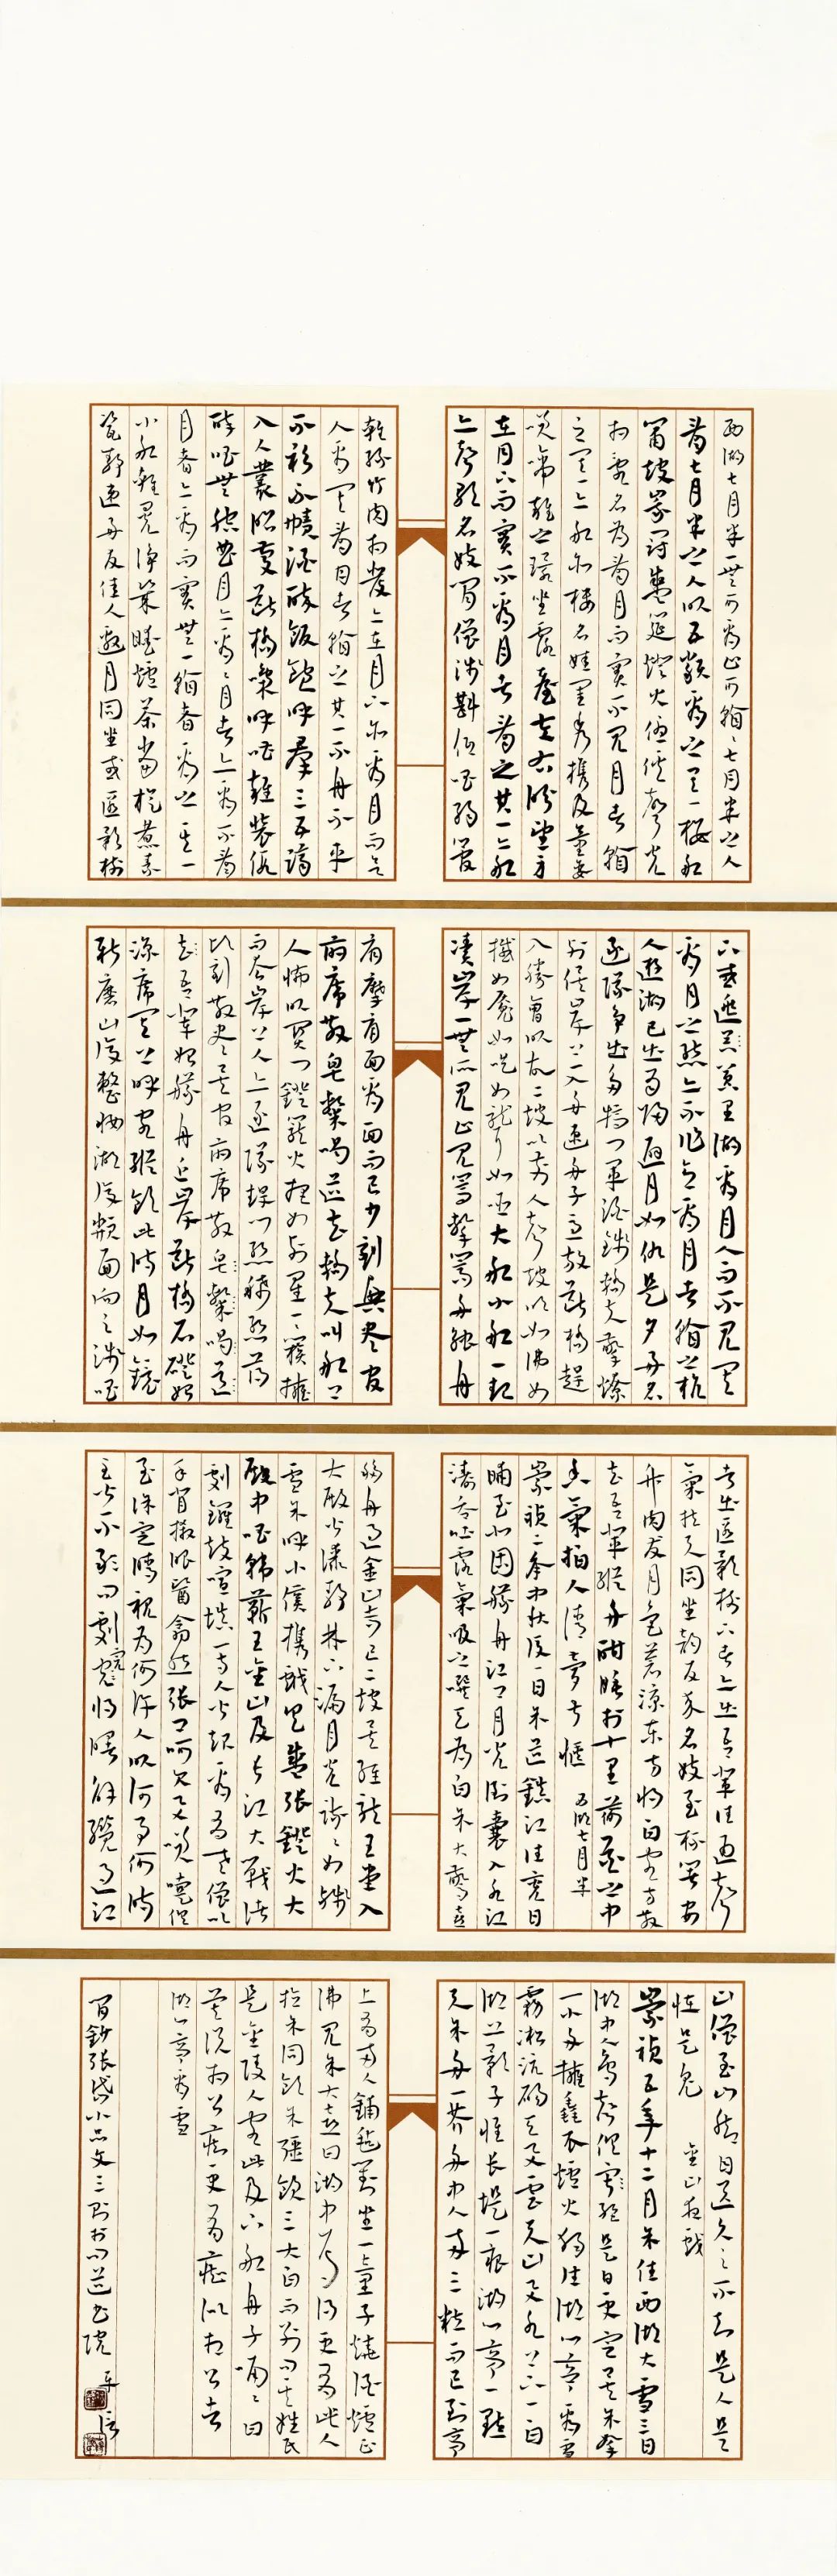 西湖七月半一無可看止可看看七月半之人
看七月半之人以五類看之其一樓船
簫鼓峨冠盛筵燈火優傒聲光
相亂名為看月而實不見月者看
之其一亦船亦樓名娃閨秀攜及童孌
笑啼雜之環坐露臺左右盼望身
在月下而實不看月者看之其一亦船
亦聲歌名妓閒僧淺斟低唱弱管
輕絲竹肉相發亦在月下亦看月而欲
人看其看月者看之其一不舟不車
不衫不幘酒醉飯飽呼群三五躋
入人叢昭慶斷橋嘄呼嘈雜裝假
醉唱無腔曲月亦看看月者亦看不看
月者亦看而實無一看者看之其一
小船輕幌淨几暖爐茶鐺旋煮素
瓷靜遞好友佳人邀月同坐或匿影樹
下或逃囂裏湖看月而人不見其
看月之態亦不作意看月者看之杭
人遊湖巳出酉歸避月如仇是夕好名
逐隊爭出多犒門軍酒錢轎夫擎燎
列俟岸上一入舟速舟子急放斷橋趕
入勝會以故二鼓以前人聲鼓吹如沸如
撼如魘如囈如聾如啞大船小船一齊
湊岸一無所見止見篙擊篙舟觸舟
肩摩肩面看面而已少刻興盡官
府席散皂隸喝道去轎夫叫船上
人怖以關門燈籠火把如列星一一簇擁
而去岸上人亦逐隊趕門漸稀漸薄
頃刻散盡矣官府席散皂隸喝道
去吾輩始艤舟近岸斷橋石磴始
涼席其上呼客縱飲此時月如鏡
新磨山復整妝湖復頮面向之淺唱
者出匿影樹下者亦出吾輩往通聲
氣拉與同坐韻友來名妓至杯箸安
竹肉發月色蒼涼東方將白客方散
去吾輩縱舟酣睡於十里荷花之中
香氣拍人清夢甚愜 西湖七月半
崇禎二年中秋後一日余道鎮江往兗日
晡至北固艤舟江口月光倒囊入水江
濤吞吐露氣吸之噀天為白余大驚喜
移舟過金山寺已二鼓矣經龍王堂入
大殿皆漆靜林下漏月光疏疏如殘
雪余呼小傒攜戲具盛張燈火大
殿中唱韓蘄王金山及長江大戰諸
劇鑼鼓喧填一寺人皆起看有老僧以
手背摋眼翳翕然張口呵欠與笑嚏俱
至徐定睛視為何許人以何事何時
至皆不敢問劇完將曙解纜過江
山僧至山腳目送久之不知是人是
怪是鬼 金山夜戲
崇禎五年十二月余住西湖大雪三日
湖中人鳥聲俱絕是日更定矣余拏
一小舟擁毳衣爐火獨往湖心亭看雪
霧凇沆碭天與雲與山與水上下一白
湖上影子惟長堤一痕湖心亭一點
與余舟一芥舟中人兩三粒而已到亭
上有兩人鋪氈對坐一童子燒酒爐正
沸見余大喜曰湖中焉得更有此人
拉余同飲余強飲三大白而別問其姓氏
是金陵人客此及下船舟子喃喃曰
莫說相公癡更有癡似相公者
湖心亭看雪
閒鈔張岱小品文三則於問道書院